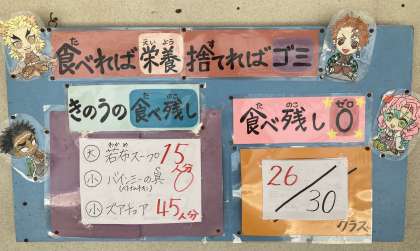 食べれば栄養捨てればゴミ
きのうの食べ残し
食べ残し0
大 若布スープの 15人分
小 バインミーの具 0
小 ズアチュア 45人分
26/30
クラス